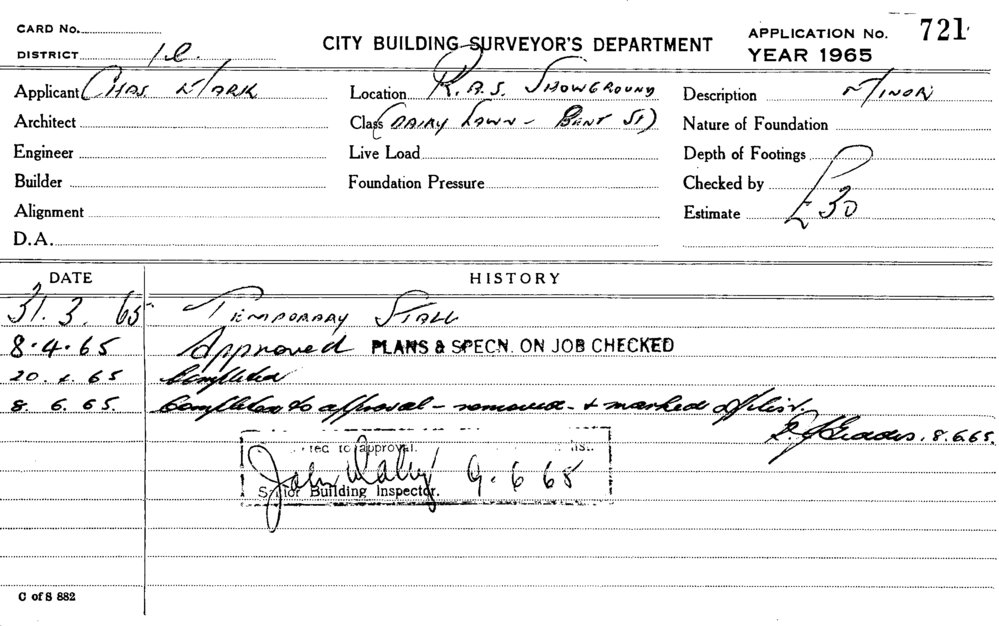 CARD No.
DISTRICT
CITY BUILDING SURVEYOR'S DEPARTMENT
APPLICATION No. 721
YEAR 1965
Applicant Chas Mark
Location R.A.S. Showground
Description Minor
Architect
Class (Dairy Lawn - Bent St)
Nature of Foundation
Engineer
Live Load
Depth of Footings
Builder
Foundation Pressure
Checked by
Alignment
Estimate £30
D.A.
DATE HISTORY
31.3.65 Temporary Stall
8.4.65 Approved PLANS & SPECN. ON JOB CHECKED
20. 65 Completed
8.6.65. Completed to approval - removed - & marked off list.
8.6.65.
to approval.
John 9.6.65
Senior Building Inspector.
C of S 882